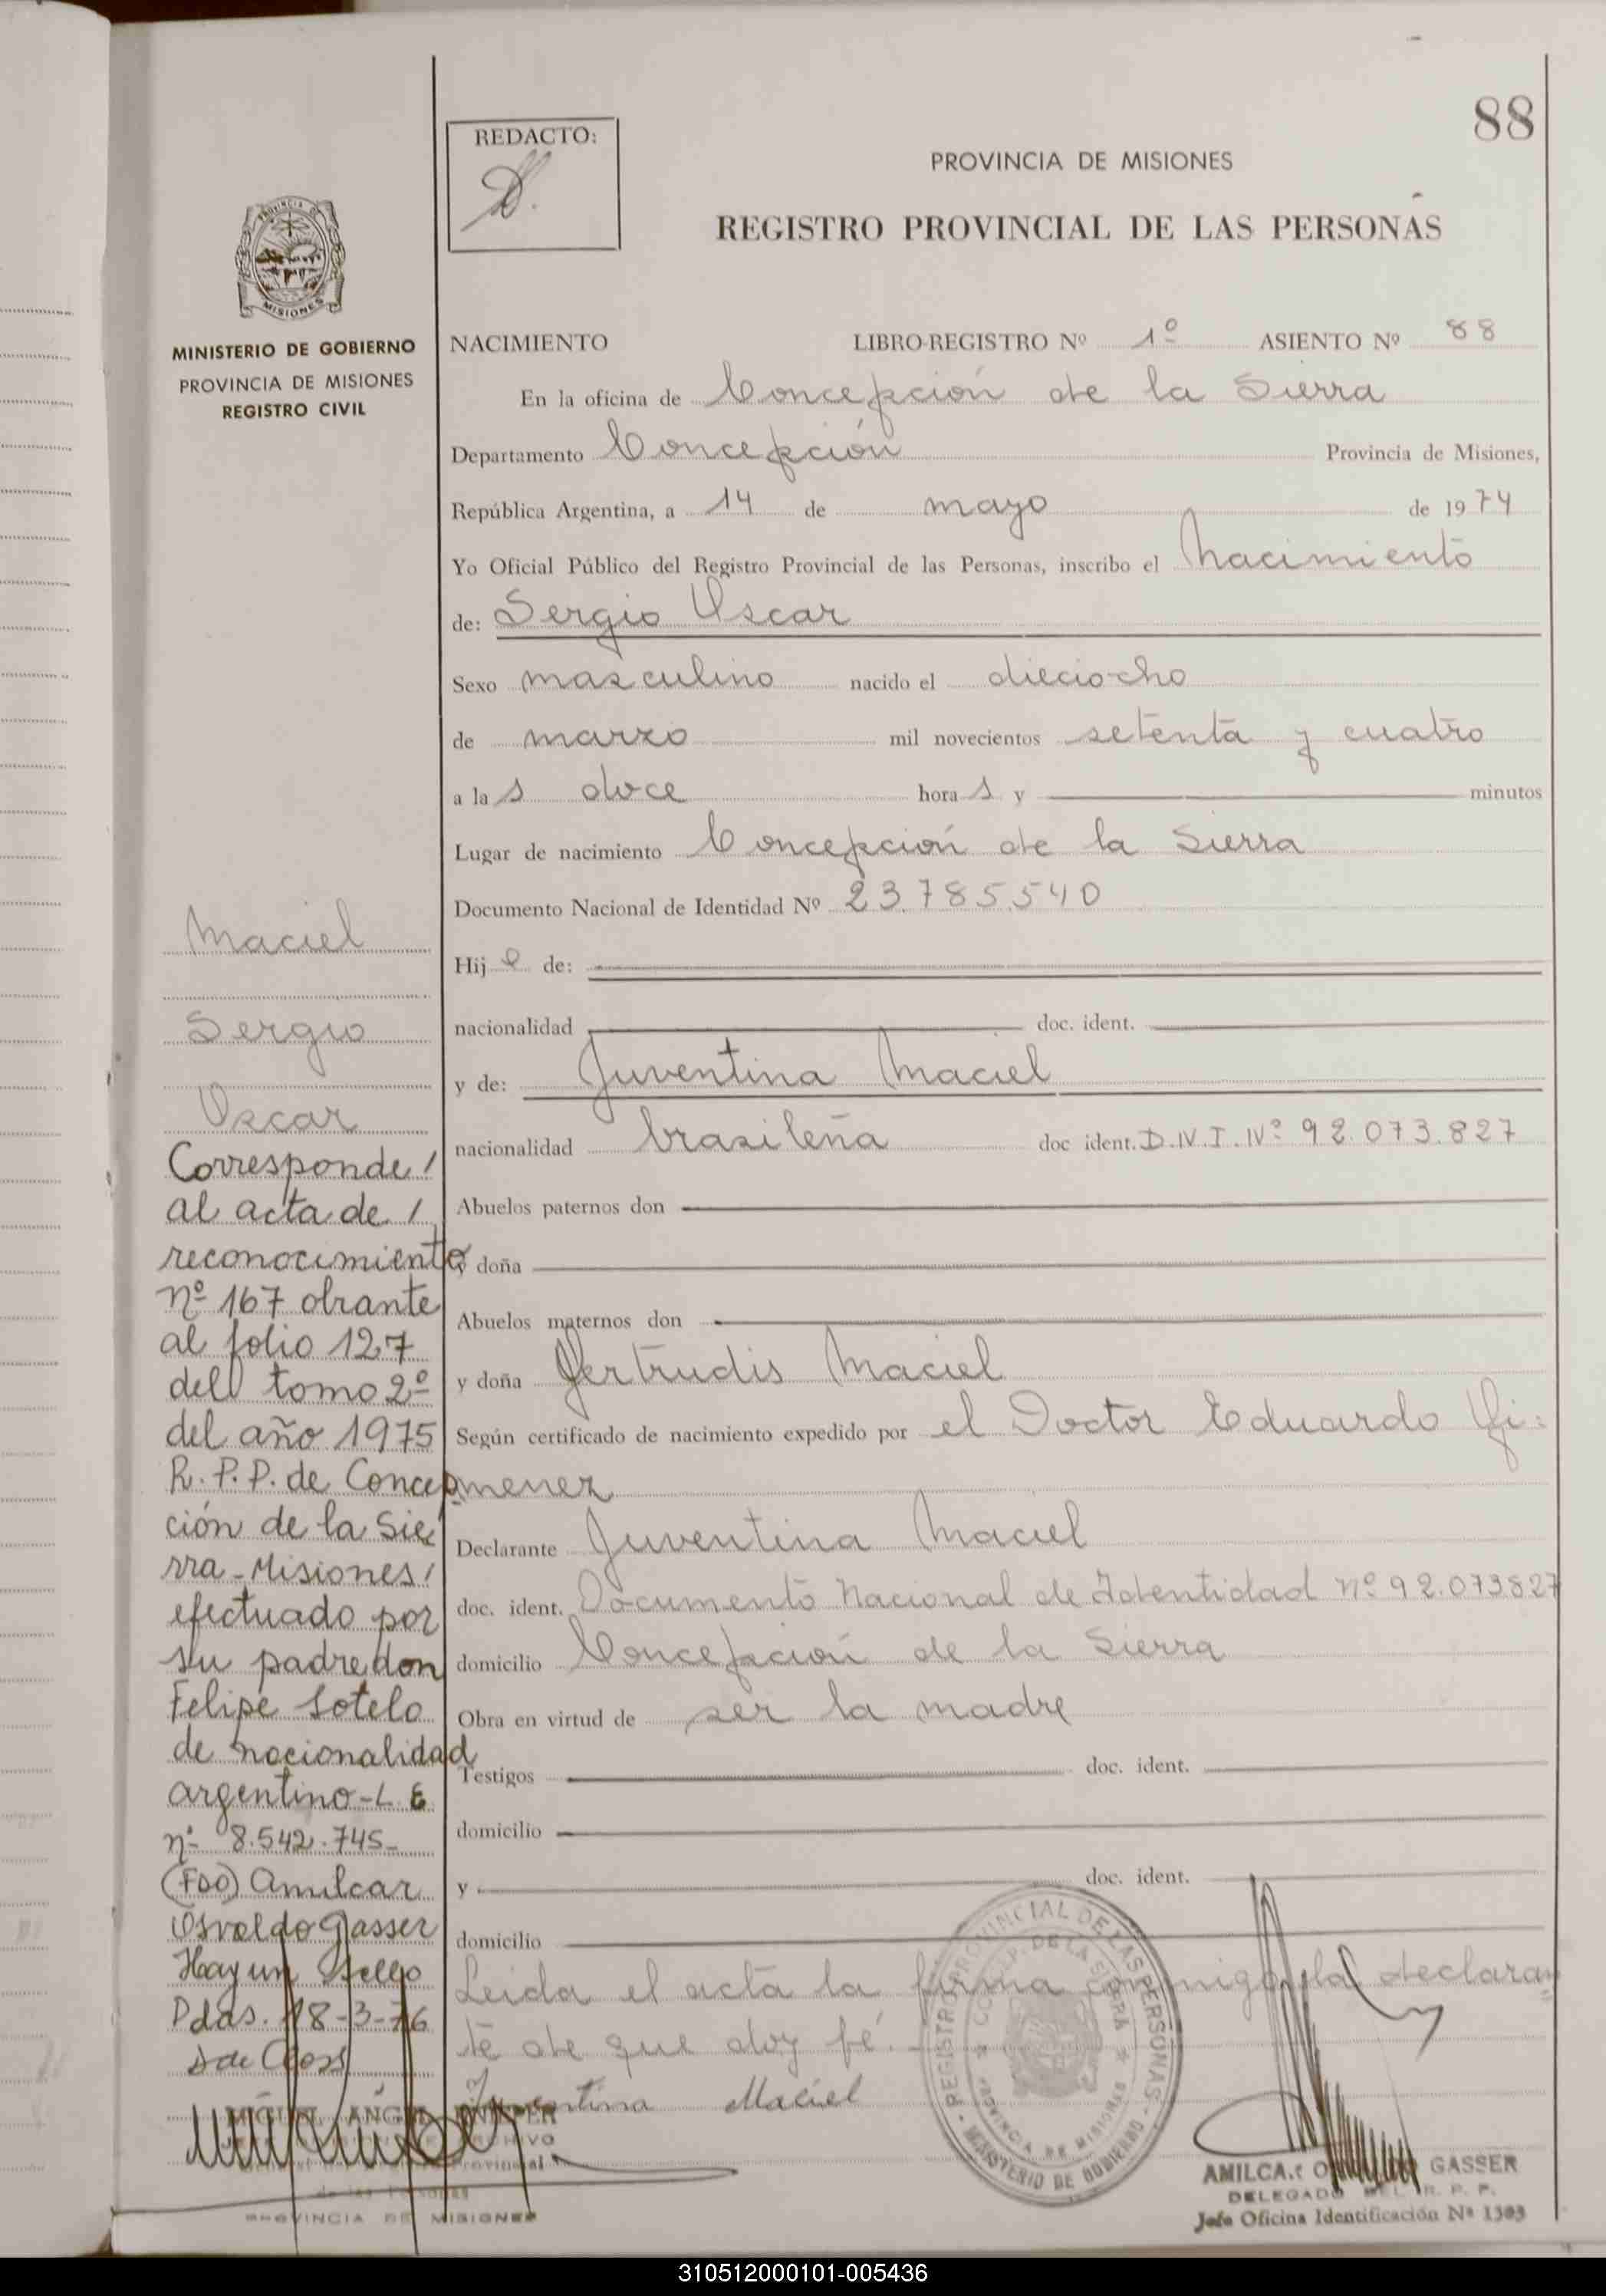 88
REDACTO:
PROVINCIA DE MISIONES
REGISTRO PROVINCIAL DE LAS PERSONAS
MISIONES
MINISTERIO DE GOBIERNO
PROVINCIA DE MISIONES
REGISTRO CIVIL
NACIMIENTO LIBRO-REGISTRO Nº 1º ASIENTO Nº 88
En la oficina de Concepción de la Sierra
Departamento Concepción Provincia de Misiones,
República Argentina, a 14 de mayo de 1974
Yo Oficial Público del Registro Provincial de las Personas, inscribo el Nacimiento
de: Sergio Oscar
Sexo masculino nacido el dieciocho
de marzo mil novecientos setenta y cuatro
a las doce horas y minutos
Lugar de nacimiento Concepción de la Sierra
Documento Nacional de Identidad Nº 23.785.540
Hijo de:
nacionalidad doc. ident.
y de: Juventina Maciel
nacionalidad brasileña doc ident. D.N.I. Nº 92.073.827
Abuelos paternos don
y doña
Abuelos maternos don
y doña Gertrudis Maciel
Según certificado de nacimiento expedido por el Doctor Eduardo Gi-
menez
Declarante Juventina Maciel
doc. ident. Documento Nacional de Identidad Nº 92.073827
domicilio Concepción de la Sierra
Obra en virtud de ser la madre
Testigos doc. ident.
domicilio
y doc. ident.
domicilio
Leida el acta la firma conmigo la declaran
te de que doy fé.
Juventina Maciel
Maciel
Sergio
Oscar
Corresponde/
al acta de/
reconocimiento
nº 167 obrante
al folio 127
del tomo 2º
del año 1975
R.P.P. de Concep
ción de la Sie
rra-Misiones/
efectuado por
su padre don
Felipe Sotelo
de nacionalidad
argentino-L.E
nº 8.542.745-
(Fdo) Amilcar
Osvaldo Gasser
Hay un Sello
Pdas. 18-3-76
MIGUEL ANGEL
PROVINCIA DE MISIONES
REGISTRO PROVINCIAL DE LAS PERSONAS
CONCEP. DE LA SIERRA
PROVINCIA DE MISIONES
MINISTERIO DE GOBIERNO
GASSER
DELEGADO DEL R. P. P.
Jefe Oficina Identificación Nº 1303
310512000101-005436